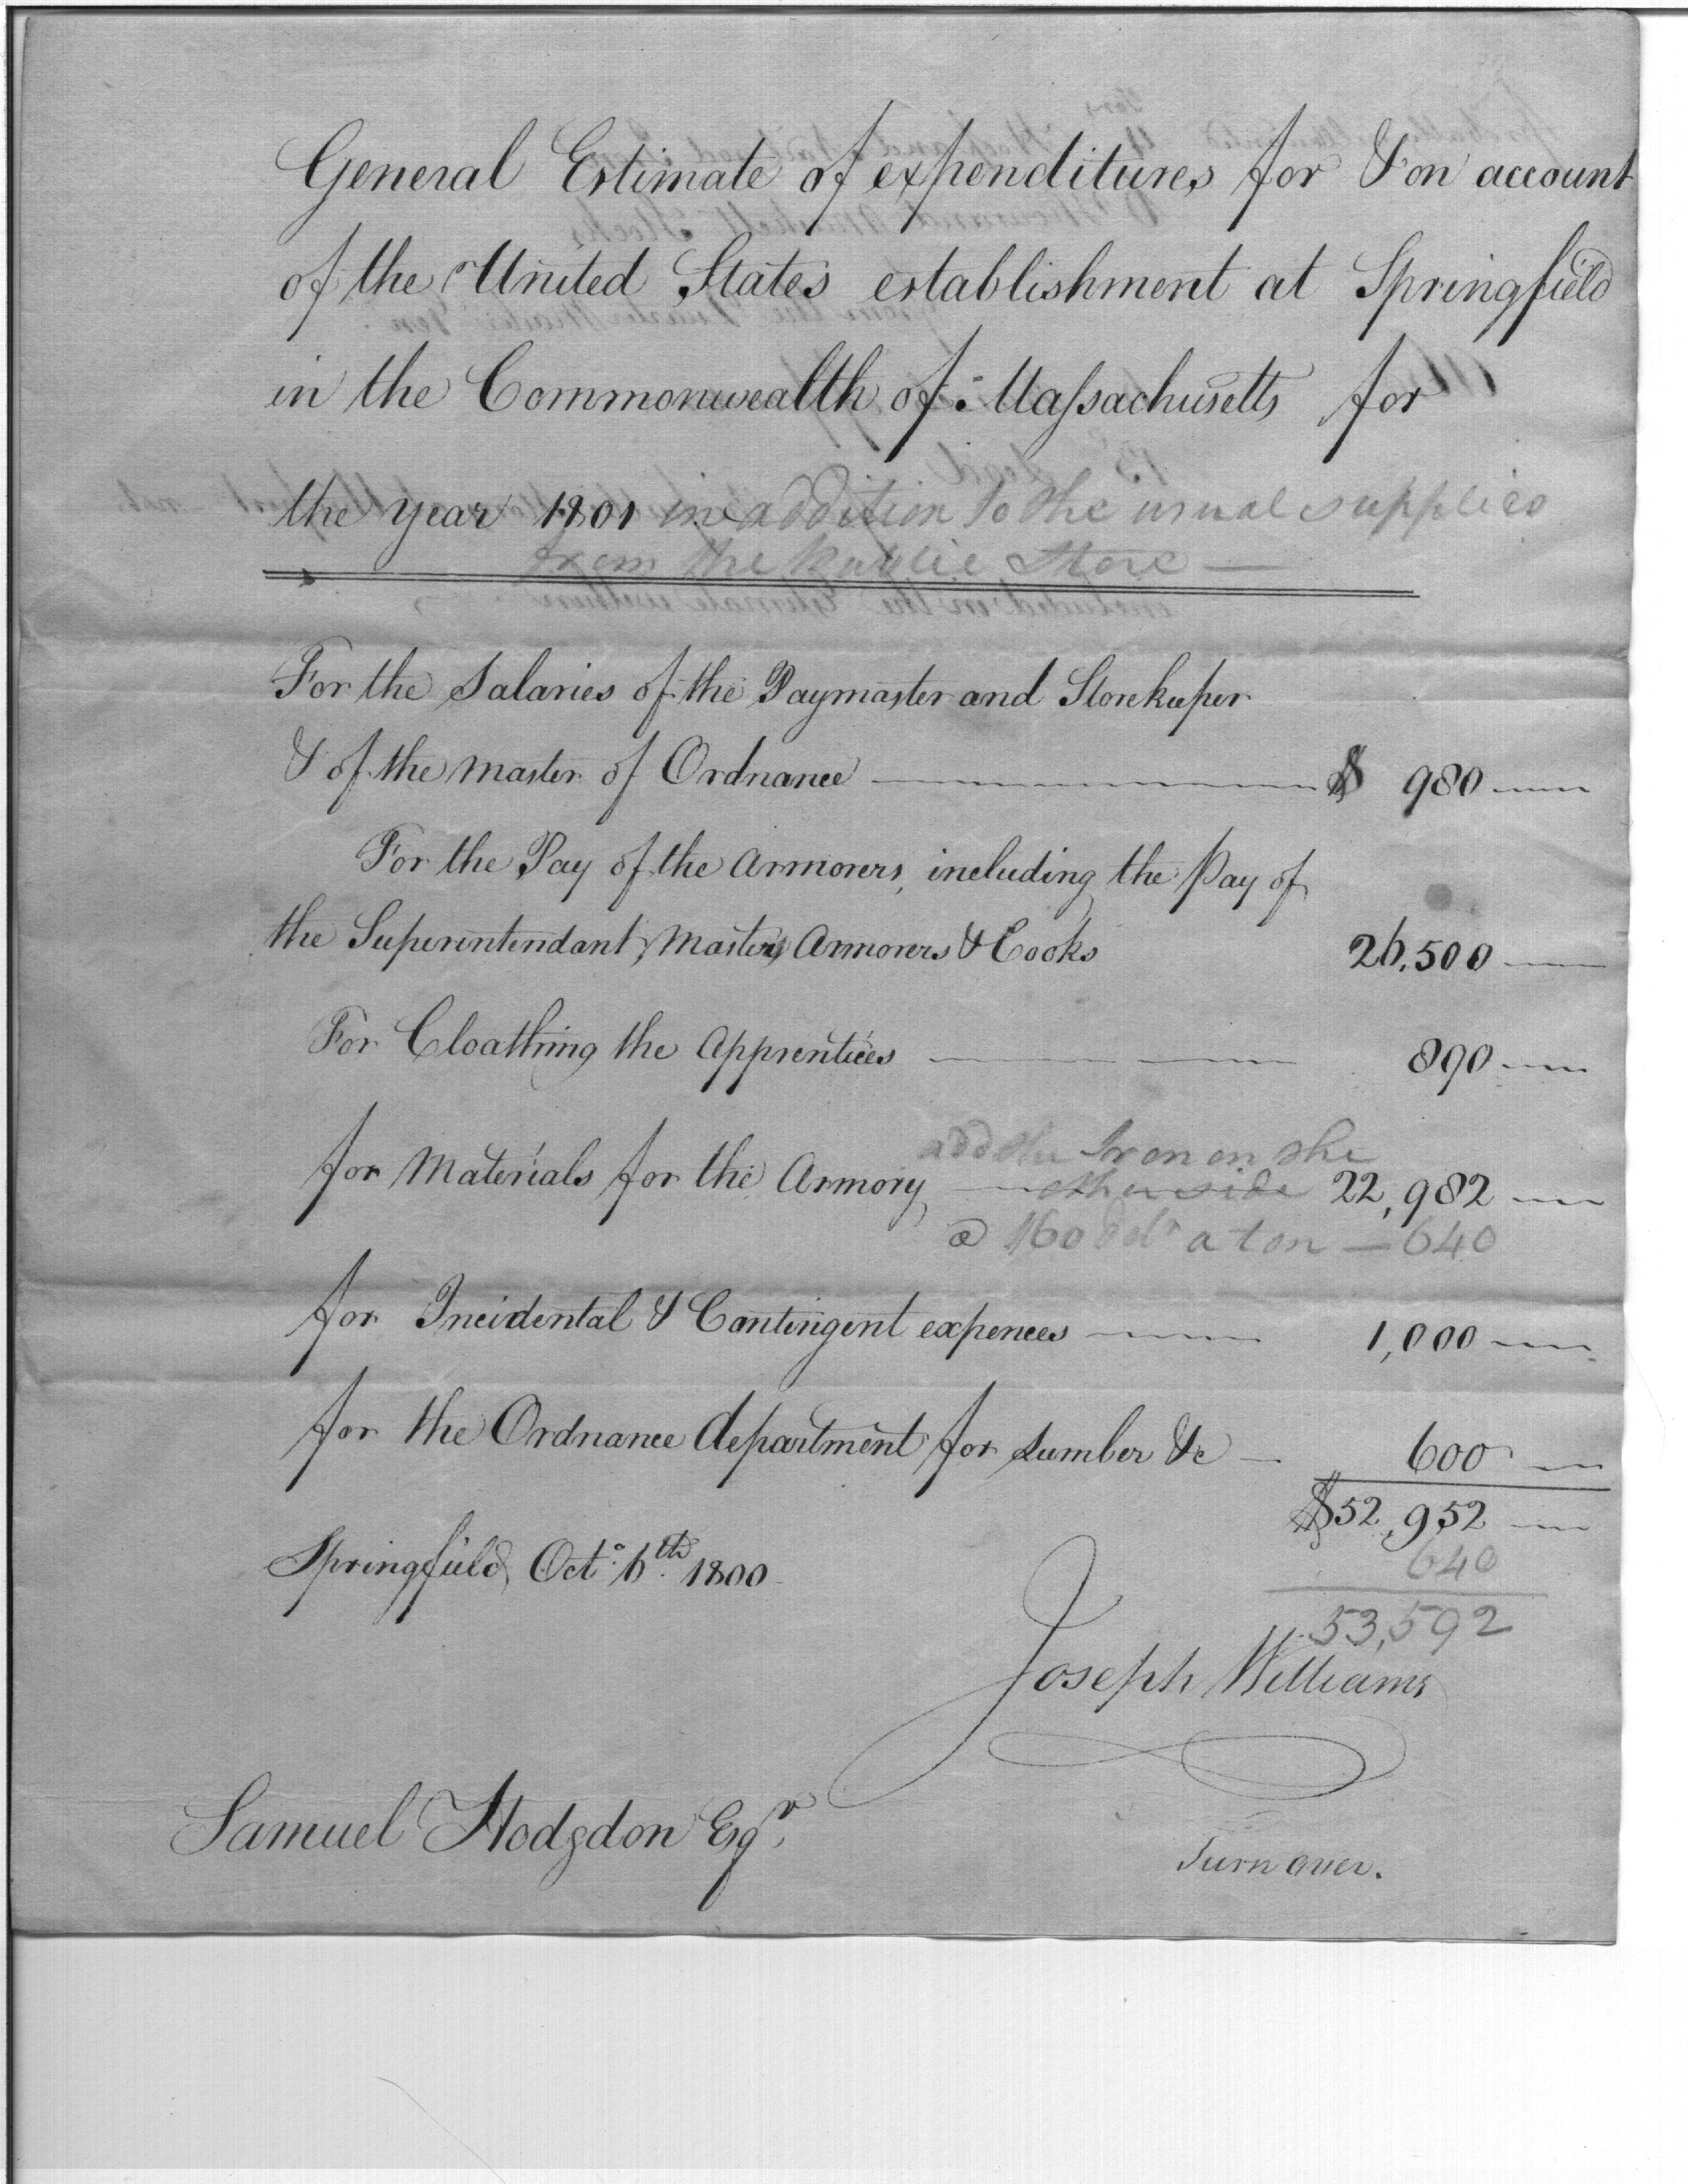 General Estimate of expenditures for & on account
of the United States establishment at Springfield
in the Commonwealth of Massachusetts for
the year 1801 in addition to the usual supplies
from the public Store —
For the Salaries of the Paymaster and Storekeeper
& of the Master of Ordnance — $ 980 —
For the Pay of the Armorers, including the Pay of
the Superintendant, Master Armorers & Cooks 26,500 —
For Cloathing the Apprentices — 890 —
add the Iron on the
for Materials for the Armory — other side 22,982 —
@ 160 dols a ton — 640
for Incidental & Contingent expences — 1,000 —
for the Ordnance department for Lumber &c — 600 —
$52,952 —
Springfield, Octo. 6th. 1800
640
53,592
Joseph Williams
Samuel Hodgdon Esqr.
Turn over.